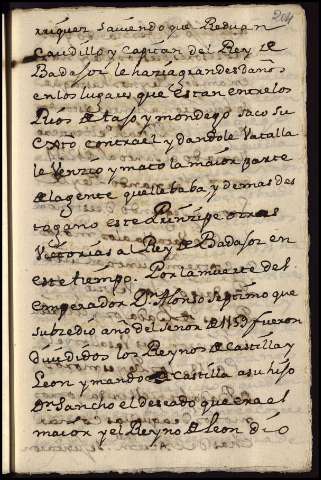 204
rriquez saviendo que Reduan
Caudillo y Capitan del Rey de
Badajoz le hazia grandes daños
en los lugares que estan entre los
Rios de taso y mondego saco su
exto contra el y dandole vatalla
le Venzio y mato la maior parte
de la gente que llebaba y demas des
to gano este Prinzipe otras
Victorias al Rey de Badajoz en
este tiempo. Por la muerte del
emperador Dn. Alonso septimo que
subzedio año del señor de 1159 fueron
divididos los Reynos de Castilla y
Leon y mando de Castilla a su hijo
Dn. Sancho el deseado que era el
maior y el Reyno de Leon dio